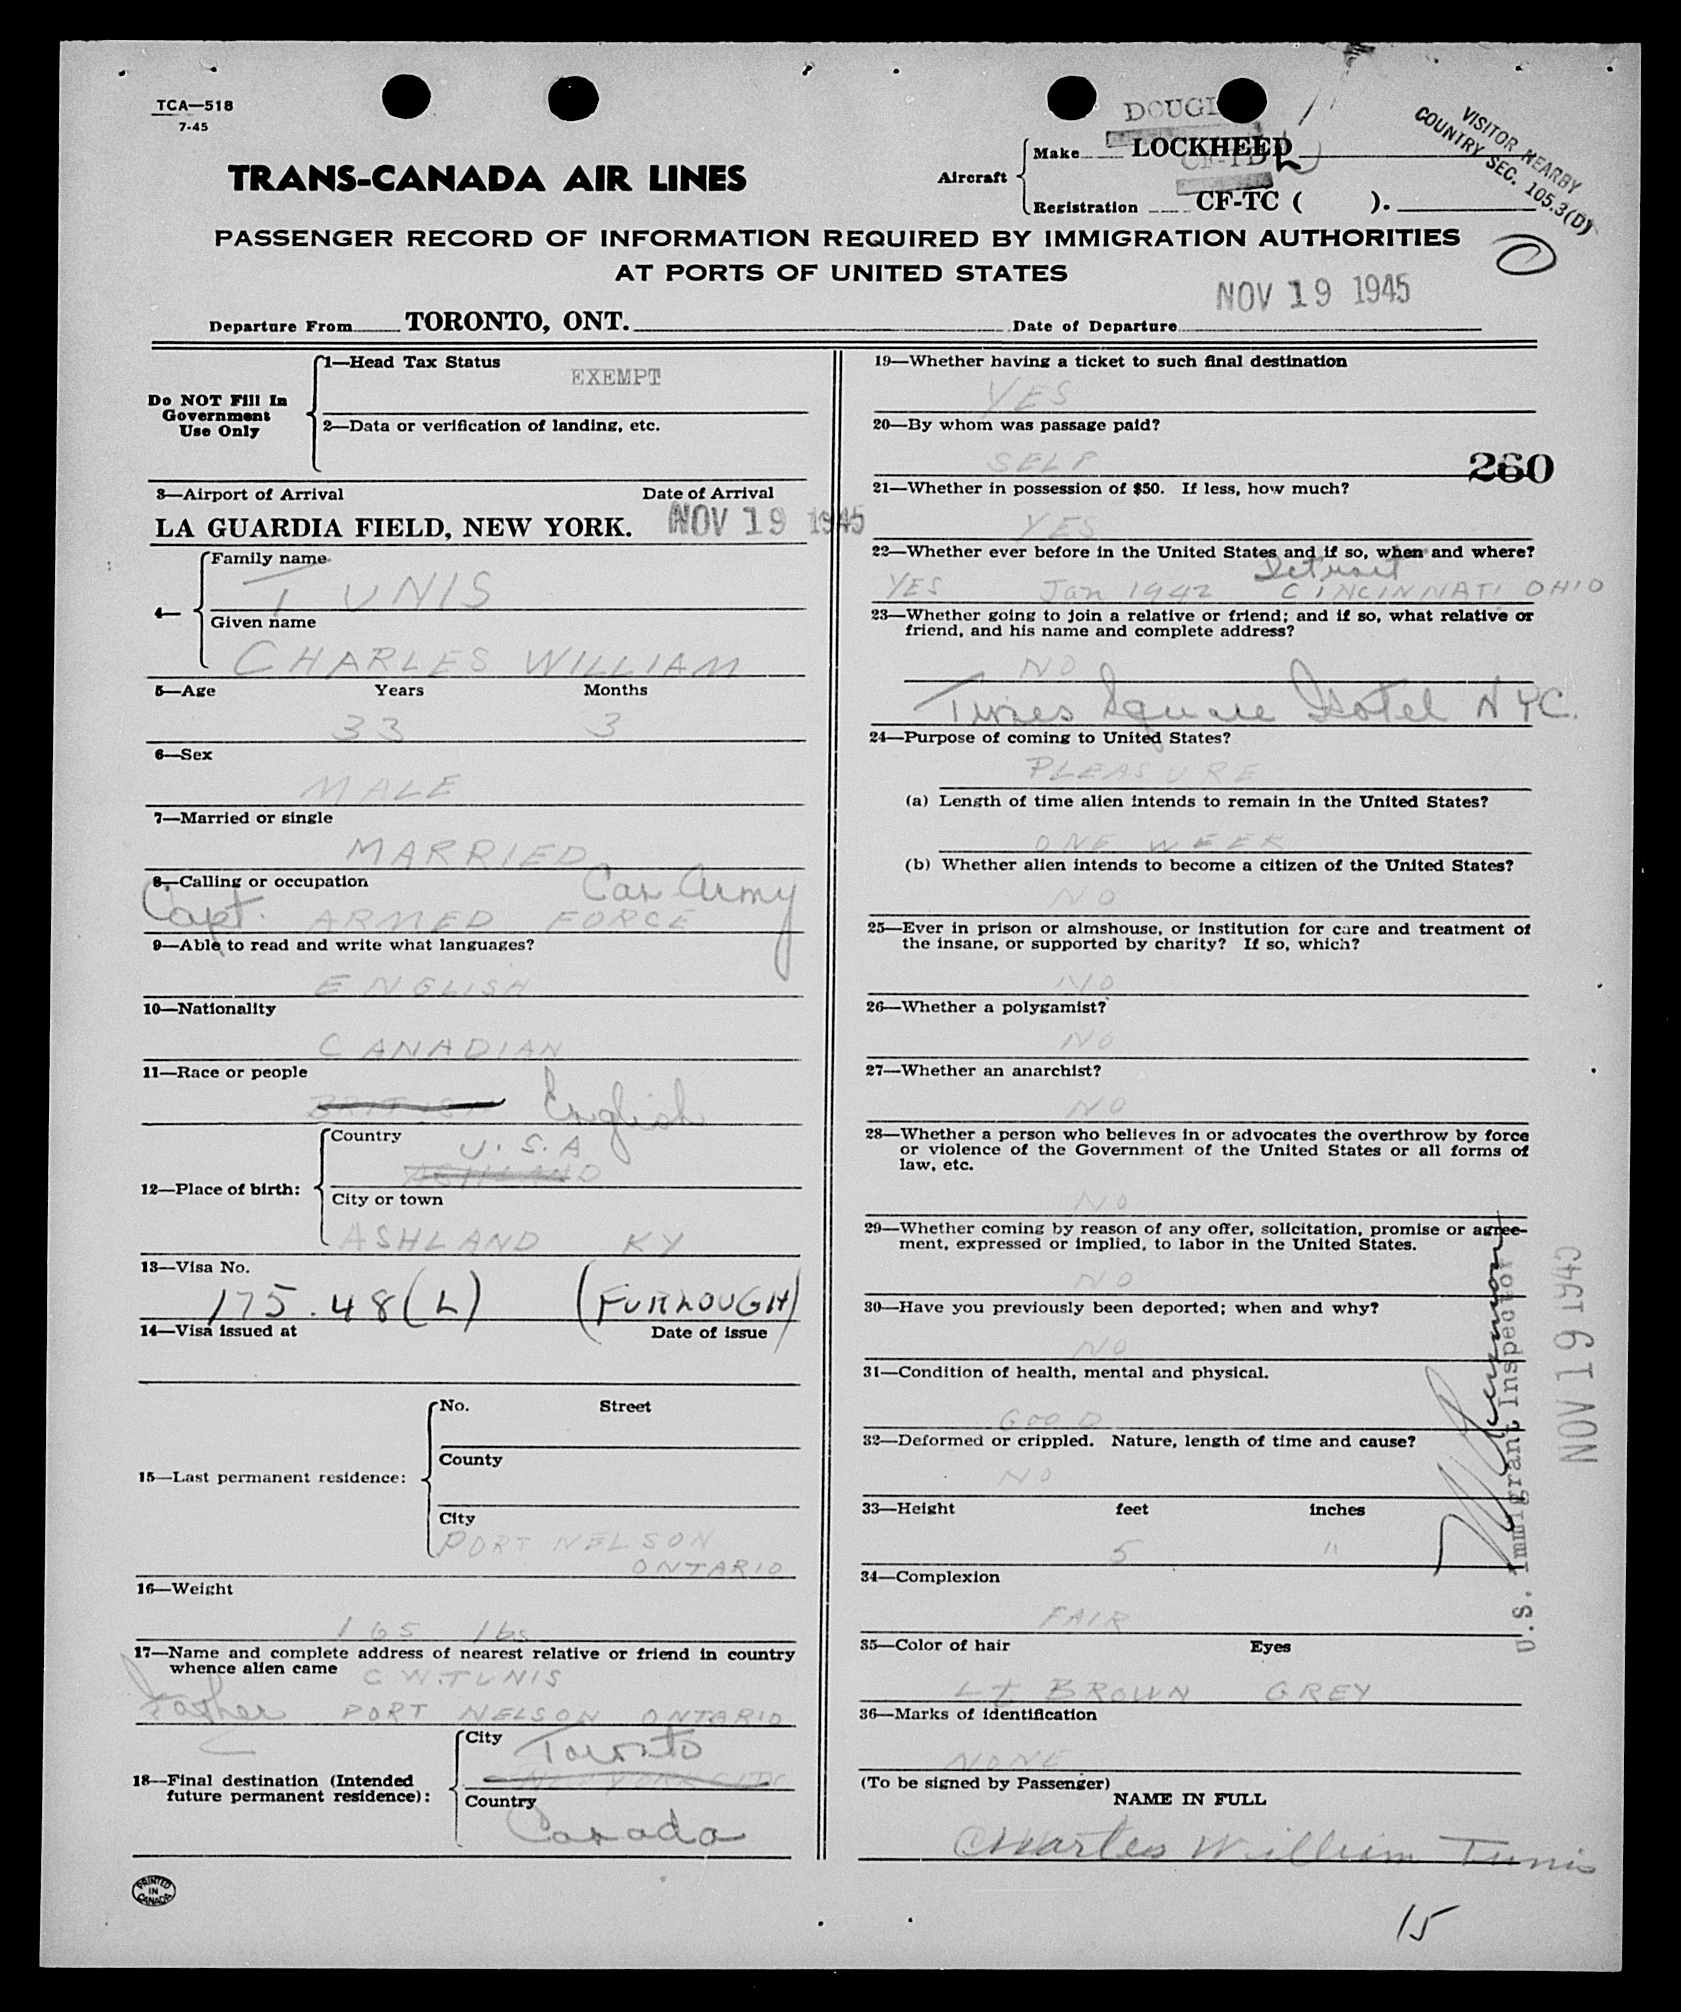 TCA—518
7-45
DOUGL
Aircraft
Make LOCKHEED
Registration CF-TC ( ).
VISITOR NEARBY
COUNTRY SEC. 105.3(D)
TRANS-CANADA AIR LINES
PASSENGER RECORD OF INFORMATION REQUIRED BY IMMIGRATION AUTHORITIES
AT PORTS OF UNITED STATES
NOV 19 1945
Departure From TORONTO, ONT. Date of Departure
Do NOT Fill In
Government
Use Only
1—Head Tax Status
EXEMPT
2—Data or verification of landing, etc.
3—Airport of Arrival Date of Arrival
LA GUARDIA FIELD, NEW YORK. NOV 19 1945
4—
Family name
TUNIS
Given name
CHARLES WILLIAM
5—Age Years Months
33 3
6—Sex
MALE
7—Married or single
MARRIED
8—Calling or occupation Can Army
Capt. ARMED FORCE
9—Able to read and write what languages?
ENGLISH
10—Nationality
CANADIAN
11—Race or people
BRITISH English
12—Place of birth:
Country
U.S.A
ASHLAND
City or town
ASHLAND KY
13—Visa No.
175.48(L) (FURLOUGH)
14—Visa issued at Date of issue
15—Last permanent residence:
No. Street
County
City
PORT NELSON
ONTARIO
16—Weight
165 lbs
17—Name and complete address of nearest relative or friend in country
whence alien came C W. TUNIS
Father PORT NELSON ONTARIO
18—Final destination (Intended
future permanent residence):
City Toronto
NEW YORK CITY
Country
Canada
PRINTED
IN
CANADA
19—Whether having a ticket to such final destination
YES
20—By whom was passage paid?
SELF
260
21—Whether in possession of $50. If less, how much?
YES
22—Whether ever before in the United States and if so, when and where?
Detroit
YES Jan 1942 CINCINNATI OHIO
23—Whether going to join a relative or friend; and if so, what relative or
friend, and his name and complete address?
NO
Times Square Hotel NYC.
24—Purpose of coming to United States?
PLEASURE
(a) Length of time alien intends to remain in the United States?
ONE WEEK
(b) Whether alien intends to become a citizen of the United States?
NO
25—Ever in prison or almshouse, or institution for care and treatment of
the insane, or supported by charity? If so, which?
NO
26—Whether a polygamist?
NO
27—Whether an anarchist?
NO
28—Whether a person who believes in or advocates the overthrow by force
or violence of the Government of the United States or all forms of
law, etc.
NO
29—Whether coming by reason of any offer, solicitation, promise or agree-
ment, expressed or implied, to labor in the United States.
NO
30—Have you previously been deported; when and why?
NO
31—Condition of health, mental and physical.
GOOD
32—Deformed or crippled. Nature, length of time and cause?
NO
33—Height feet inches
5 11
34—Complexion
FAIR
35—Color of hair Eyes
Lt BROWN GREY
36—Marks of identification
NONE
(To be signed by Passenger)
NAME IN FULL
Charles William Tunis
U.S. Immigrant Inspector
NOV 19 1945
15